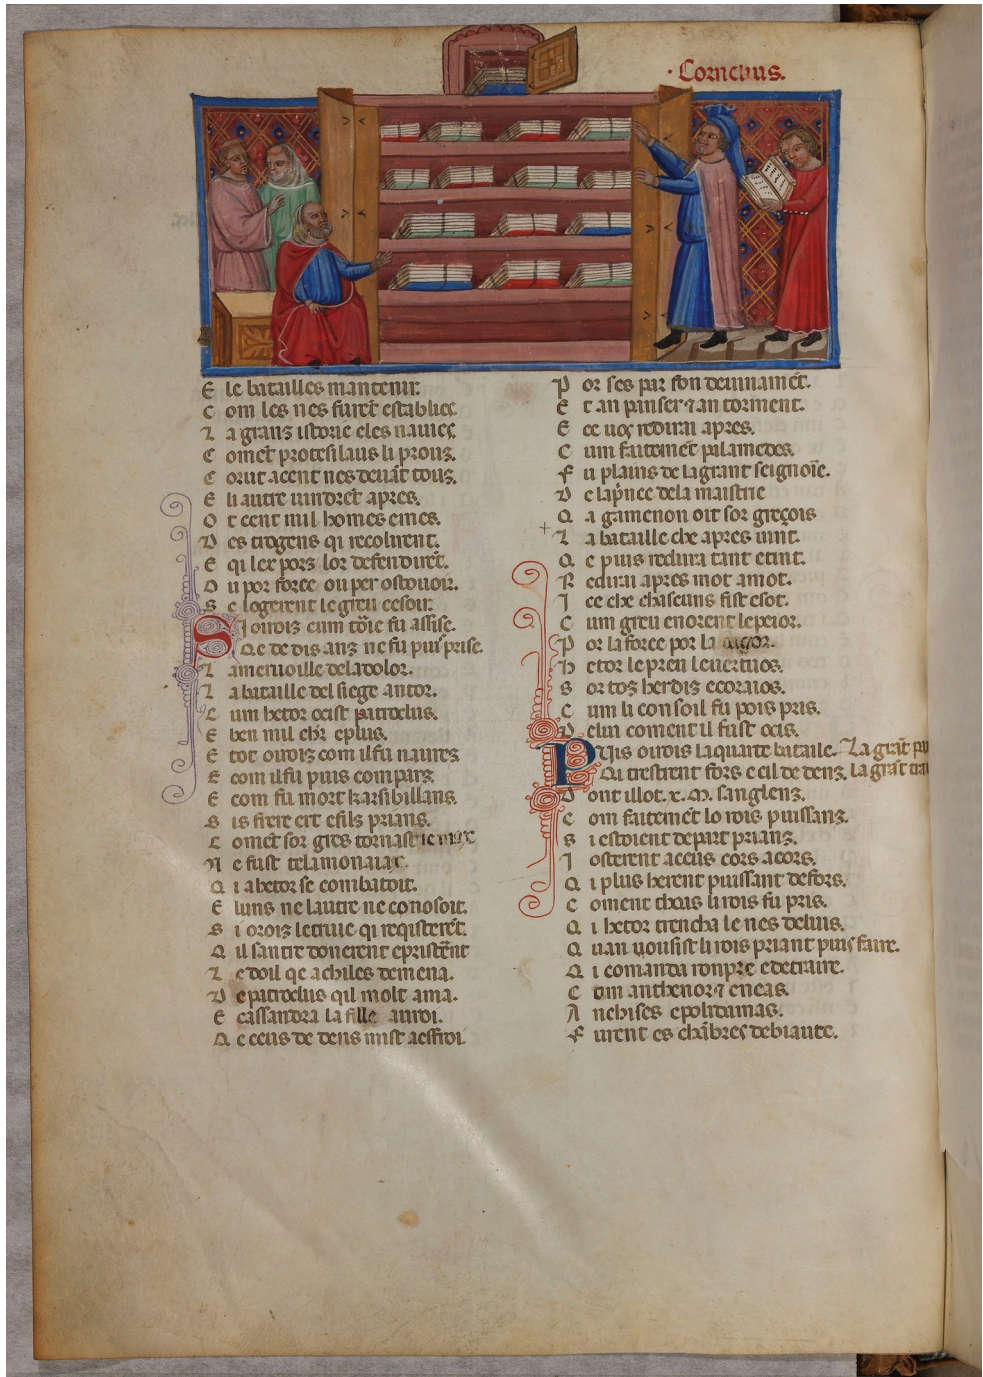 · Cornelius.
E le batailles mantenir.
C om les nes furēt establies.
L a granz istorie eles navies.
C omēt protesilaus li prous.
C orut acent nes devāt tous.
E li autre vindrēt apres.
O t cent mil homes eines.
D es trogens qi recolirent.
E qi lez porz lor defendirēt.
O u por force ou per ostovoir.
S e logerent le greu cesoir.
S i oirois cum tōie fu assise.
Qe de dis anz ne fu puis prise.
L a mervoille dela dolor.
L a bataille del siege antor.
C um hetor ocist patroclus.
E ben mil ch'r e plus.
E tot oirois com il fu navres
E com il fu puis compars
E com fu mort karsibillans.
S is frere ert e fils prians.
C omēt sor gres tornast
N e fust telamon aiax.
Q i a hetor se combatoit.
E luns ne lautre ne conosoit.
S i orois le truie qi reqisterēt.
Q il santre donerent e pristēnt
L e doil qe achiles demena.
D e patroclus qil molt ama.
E cassandra la fille au roi.
Q e ceus de dens mist aesfroi.
P or ses par son devinamēt.
E t an panser 7 an torment.
E ce vos redirai apres.
C um faitemēt palamedes.
F u plains de la grant seignoīe.
D e la p'nce dela maistrie
Q a gamenon oit sor greçois
L a bataille che apres vint.
Q e puis redura tant e tint.
R edirai apres mot a mot.
I ce che chascuns fist e sot.
C um greu enorent le peior.
P or la force por la
H etor le preu le vertuos.
S or toz herdis e coraios.
C um li consoil fu pois pris.
D elui coment il fust ocis.
P uis oirois la quarte bataile. La grāt
Qi trestrent fors e cil de denz. la grāt
D ont il lot .x. M. sanglenz.
C om faitemēt lo rois puissanz.
S i estoient depart prianz.
I osterent a ceus cors a cors.
Q i plus herent puissant defors.
C oment thoas li rois fu pris.
Q i hetor trencha le nes del vis.
Q uan vousist li rois priant puis faire.
Q i comanda ronpre e detraire.
C om anthenor 7 eneas.
A nchises e polidamas.
F urent es chābres debiaute.